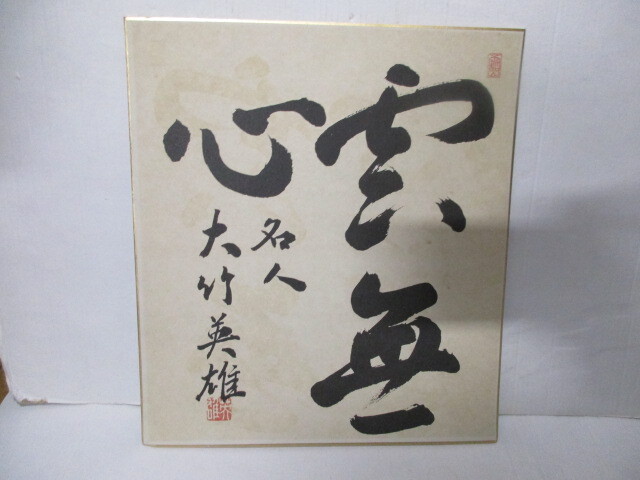 雲無
心
名人
大竹英雄